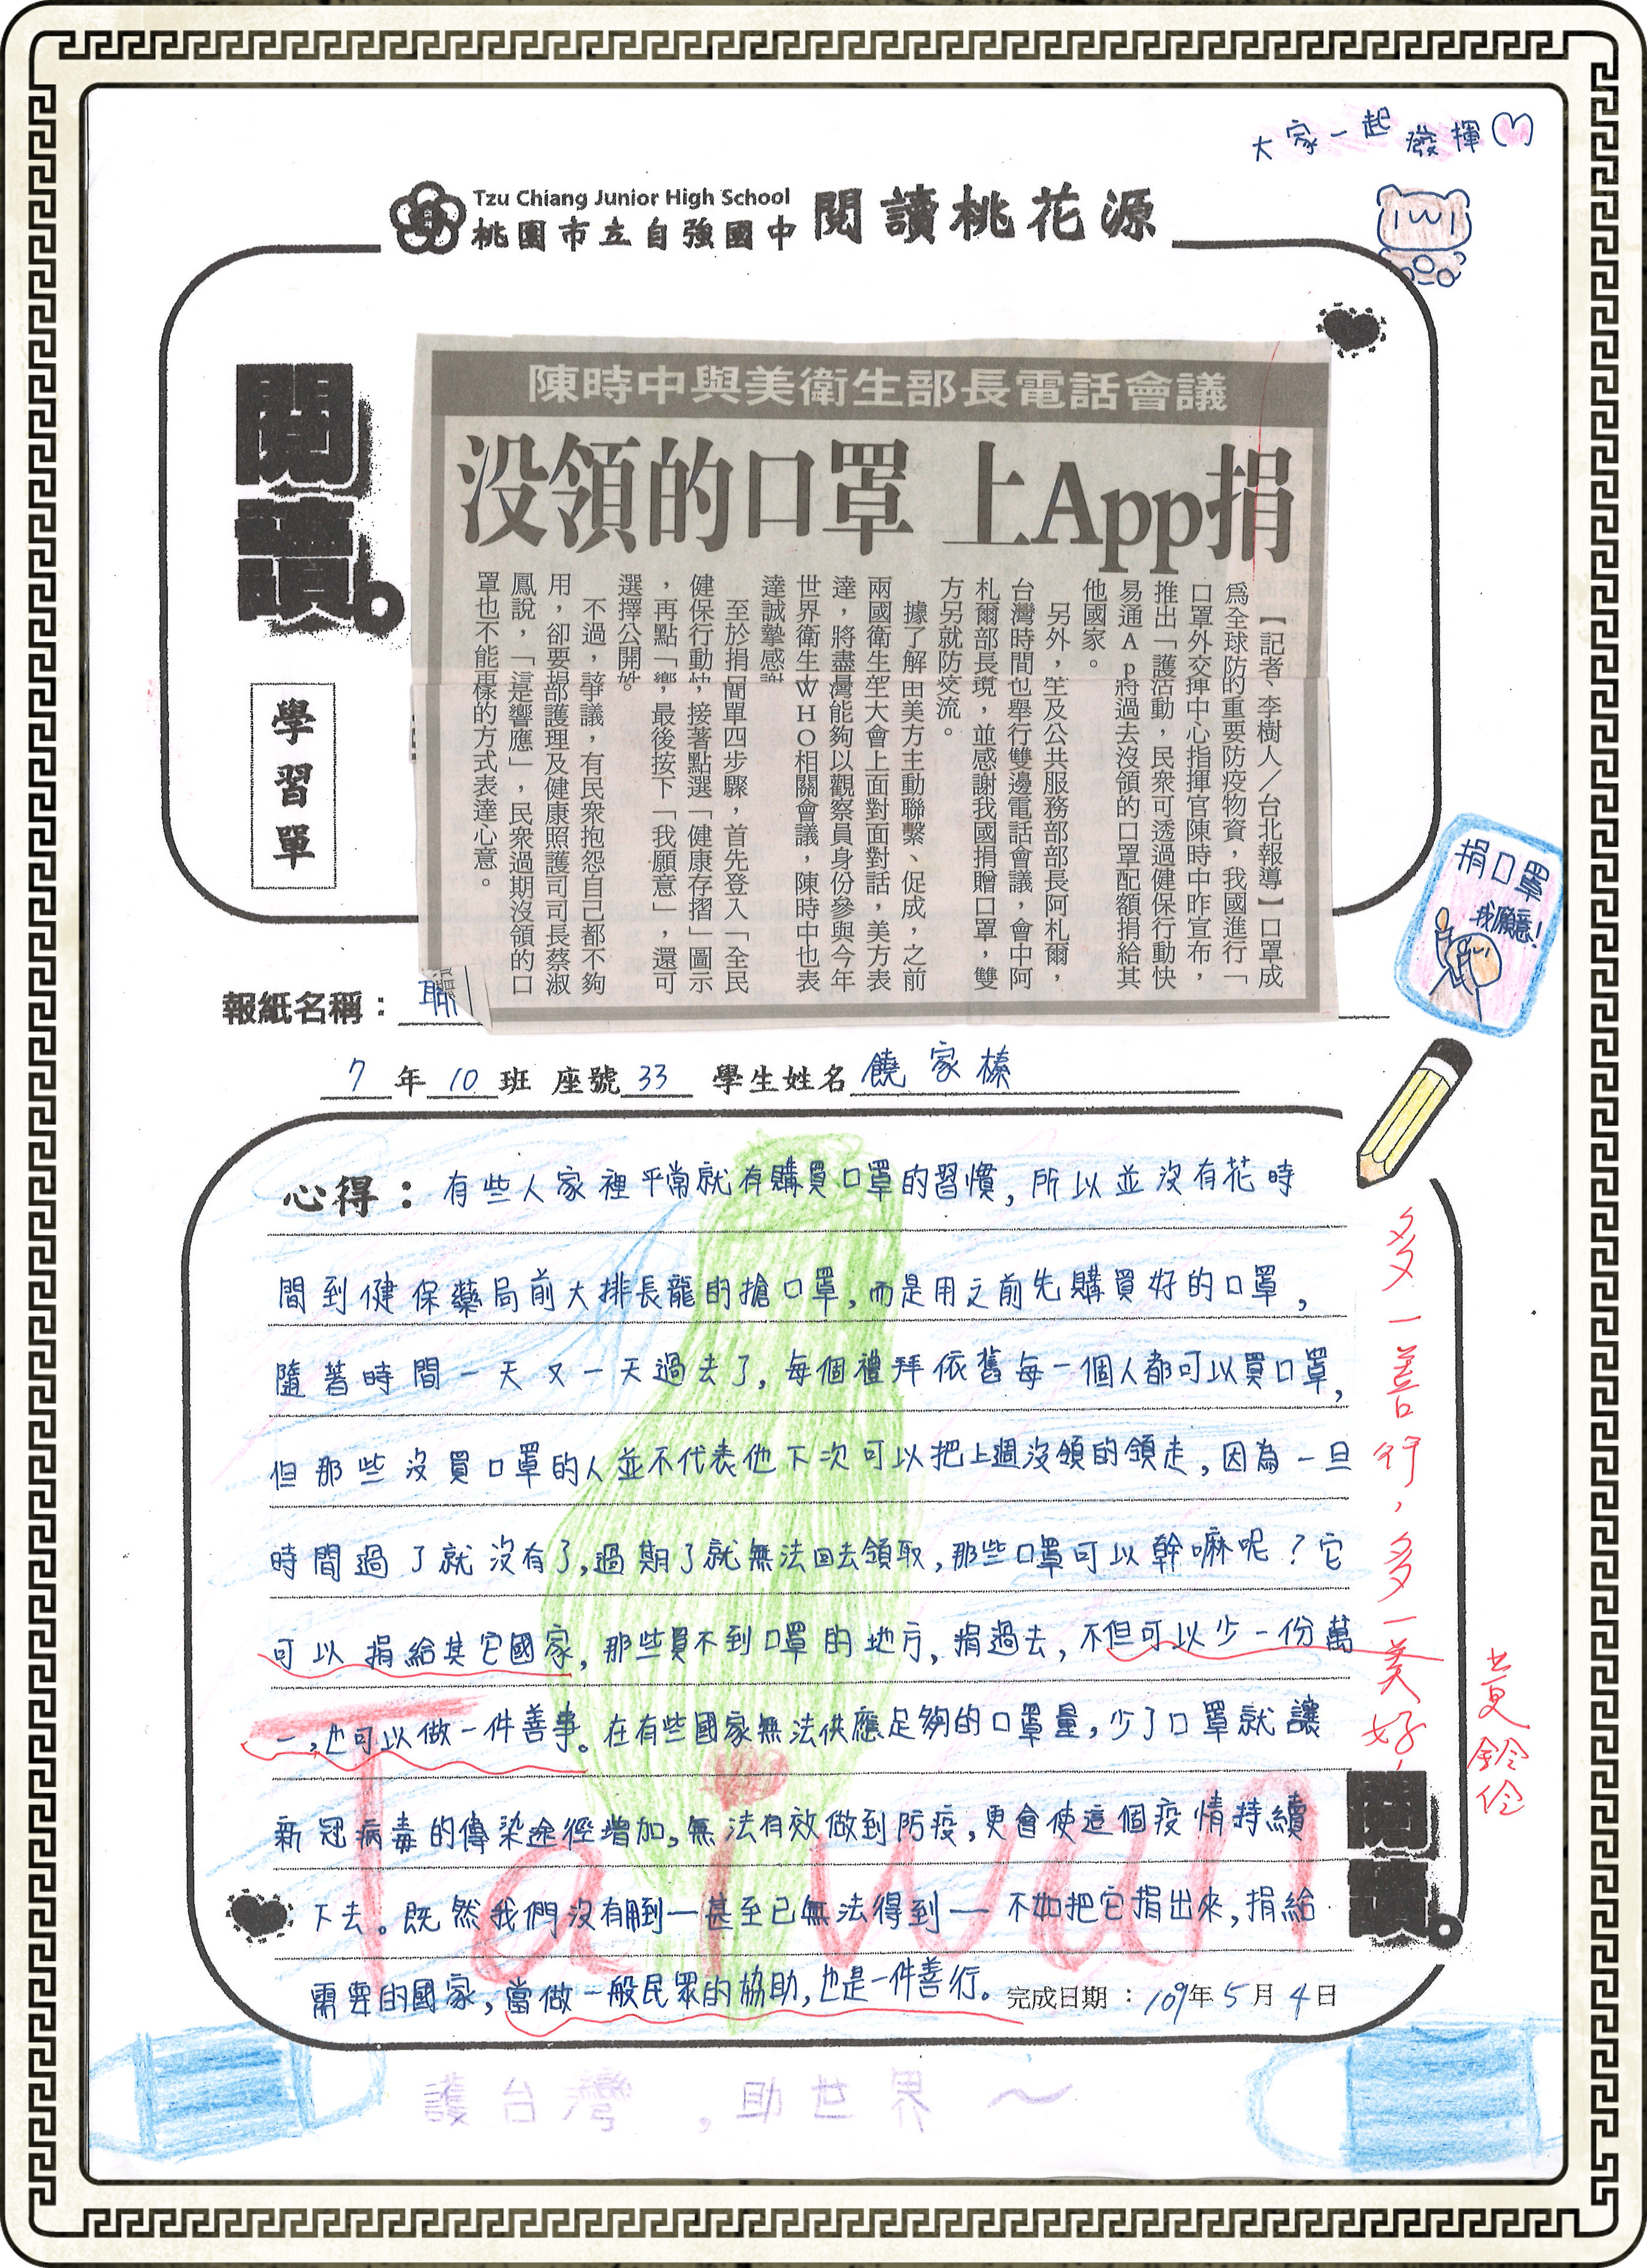 大家一起發揮
Tzu Chiang Junior High School
桃園市立自強國中 閱讀桃花源
閱讀。
學習單
陳時中與美衛生部長電話會議
沒領的口罩 上App捐
【記者、李樹人／台北報導】口罩成
為全球防的重要防疫物資，我國進行「
口罩外交揮中心指揮官陳時中昨宣布，
推出「護活動，民眾可透過健保行動快
易通Ap將過去沒領的口罩配額捐給其
他國家。
另外，生及公共服務部部長阿札爾，
台灣時間也舉行雙邊電話會議，會中阿
札爾部長境，並感謝我國捐贈口罩，雙
方另就防交流。
據了解田美方主動聯繫、促成，之前
兩國衛生大會上面對面對話，美方表
達，將盡灣能夠以觀察員身份參與今年
世界衛生WHO相關會議，陳時中也表
達誠摯感謝
至於捐簡單四步驟，首先登入「全民
健保行動快，接著點選「健康存摺」圖示
，再點「響，最後按下「我願意」，還可
選擇公開姓。
不過，該爭議，有民眾抱怨自己都不夠
用，卻要捐部護理及健康照護司司長蔡淑
鳳說，「這是響應」，民眾過期沒領的口
罩也不能再樣的方式表達心意。
捐口罩
我願意！
報紙名稱：聯
7年10班 座號33 學生姓名 饒家榛
心得：有些人家裡平常就有購買口罩的習慣，所以並沒有花時
間到健保藥局前大排長龍的搶口罩，而是用之前先購買好的口罩，
隨著時間一天又一天過去了，每個禮拜依舊每一個人都可以買口罩，
但那些沒買口罩的人並不代表他下次可以把上週沒領的領走，因為一旦
時間過了就沒有了，過期了就無法回去領取，那些口罩可以幹嘛呢？它
可以捐給其它國家，那些買不到口罩的地方，捐過去，不但可以少一份萬
一，也可以做一件善事。在有些國家無法供應足夠的口罩量，少了口罩就讓
新冠病毒的傳染途徑增加，無法有效做到防疫，更會使這個疫情持續
下去。既然我們沒有用到—甚至已無法得到—不如把它捐出來，捐給
需要的國家，當做一般民眾的協助，也是一件善行。
完成日期：109年5月4日
Taiwan
多一善行，多一美好！
黃鈴伶
閱讀。
護台灣，助世界～